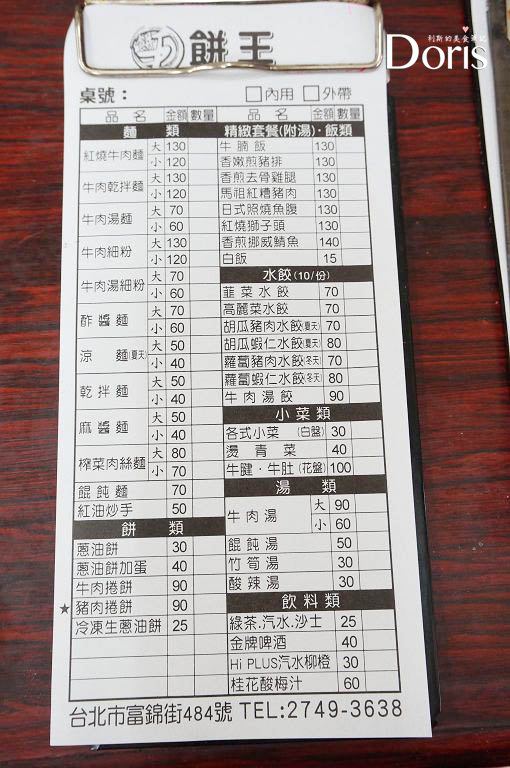 利斯的美食筆記
Doris
餅王
桌號： □內用 □外帶
品名 金額 數量
麵類
紅燒牛肉麵 大 130
小 120
牛肉乾拌麵 大 130
小 120
牛肉湯麵 大 70
小 60
牛肉細粉 大 130
小 120
牛肉湯細粉 大 70
小 60
酢醬麵 大 70
小 60
涼麵(夏天) 大 50
小 40
乾拌麵 大 50
小 40
麻醬麵 大 50
小 40
榨菜肉絲麵 大 80
小 70
餛飩麵 70
紅油炒手 50
餅類
蔥油餅 30
蔥油餅加蛋 40
牛肉捲餅 90
★豬肉捲餅 90
冷凍生蔥油餅 25
品名 金額 數量
精緻套餐(附湯)·飯類
牛腩飯 130
香嫩煎豬排 130
香煎去骨雞腿 130
馬祖紅糟豬肉 130
日式照燒魚腹 130
紅燒獅子頭 130
香煎挪威鯖魚 140
白飯 15
水餃(10/份)
韮菜水餃 70
高麗菜水餃 70
胡瓜豬肉水餃(夏天) 70
胡瓜蝦仁水餃(夏天) 80
蘿蔔豬肉水餃(冬天) 70
蘿蔔蝦仁水餃(冬天) 80
牛肉湯餃 90
小菜類
各式小菜 (白盤) 30
燙青菜 40
牛腱·牛肚 (花盤) 100
湯類
牛肉湯 大 90
小 60
餛飩湯 50
竹筍湯 30
酸辣湯 30
飲料類
綠茶.汽水.沙士 25
金牌啤酒 40
Hi PLUS汽水柳橙 30
桂花酸梅汁 60
台北市富錦街484號 TEL:2749-3638